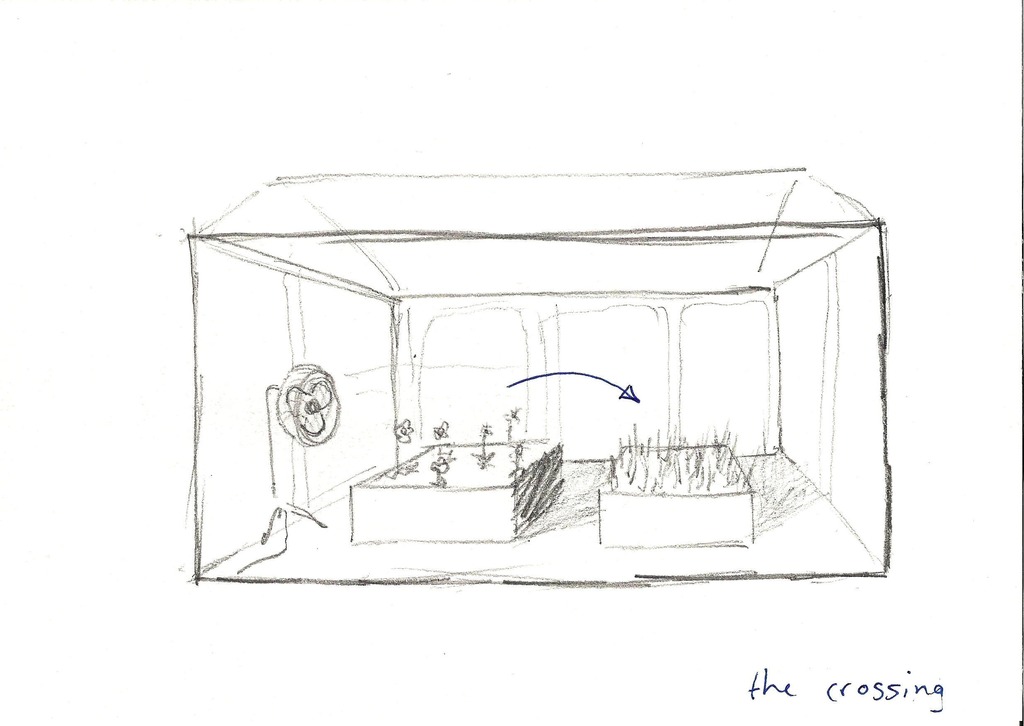 the crossing